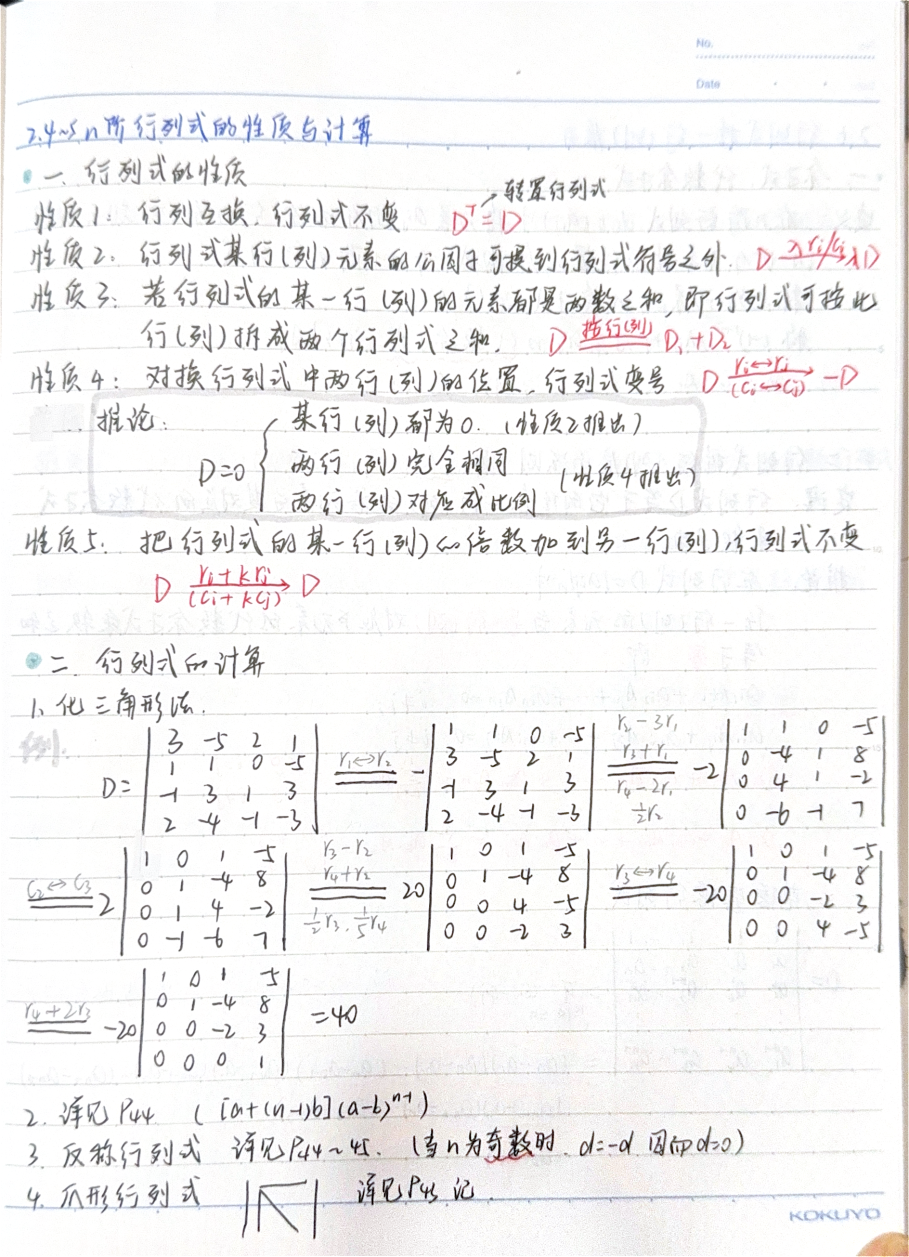 No.
Date
2.4~5 n阶行列式的性质与计算
一、行列式的性质
转置行列式
性质1：行列互换，行列式不变 Dᵀ=D
性质2：行列式某行(列)元素的公因子可提到行列式符号之外. D λri/cj λD
性质3：若行列式的某一行(列)的元素都是两数之和，即行列式可按此
行(列)拆成两个行列式之和. D 按行(列) D₁+D₂
性质4：对换行列式中两行(列)的位置，行列式变号 D ri↔rj (ci↔cj) -D
推论：
某行(列)都为0.（性质2推出）
D=0 两行(列)完全相同
（性质4推出）
两行(列)对应成比例
性质5：把行列式的某一行(列)的倍数加到另一行(列)，行列式不变
D ri+krj (ci+kcj) D
二、行列式的计算
1、化三角形法.
例.
D= | 3 -5 2 1 | r₁↔r₂ - | 1 1 0 -5 | r₂-3r₁ r₃+r₁ -2 | 1 1 0 -5 |
| 1 1 0 -5 | | 3 -5 2 1 | r₄-2r₁ ½r₂ | 0 -4 1 8 |
| -1 3 1 3 | | -1 3 1 3 | | 0 4 1 -2 |
| 2 -4 -1 -3 | | 2 -4 -1 -3 | | 0 -6 -1 7 |
c₂↔c₃ 2 | 1 0 1 -5 | r₃-r₂ r₄+r₂ 20 | 1 0 1 -5 | r₃↔r₄ -20 | 1 0 1 -5 |
| 0 1 -4 8 | ½r₃. ⅕r₄ | 0 1 -4 8 | | 0 1 -4 8 |
| 0 1 4 -2 | | 0 0 4 -5 | | 0 0 -2 3 |
| 0 -1 -6 7 | | 0 0 -2 3 | | 0 0 4 -5 |
r₄+2r₃ -20 | 1 0 1 -5 | =40
| 0 1 -4 8 |
| 0 0 -2 3 |
| 0 0 0 1 |
2. 详见P44 ([a+(n-1)b](a-b)ⁿ⁻¹)
3. 反称行列式 详见P44~45.（当n为奇数时. d=-d 因而d=0）
4. 爪形行列式 详见P45 记
KOKUYO